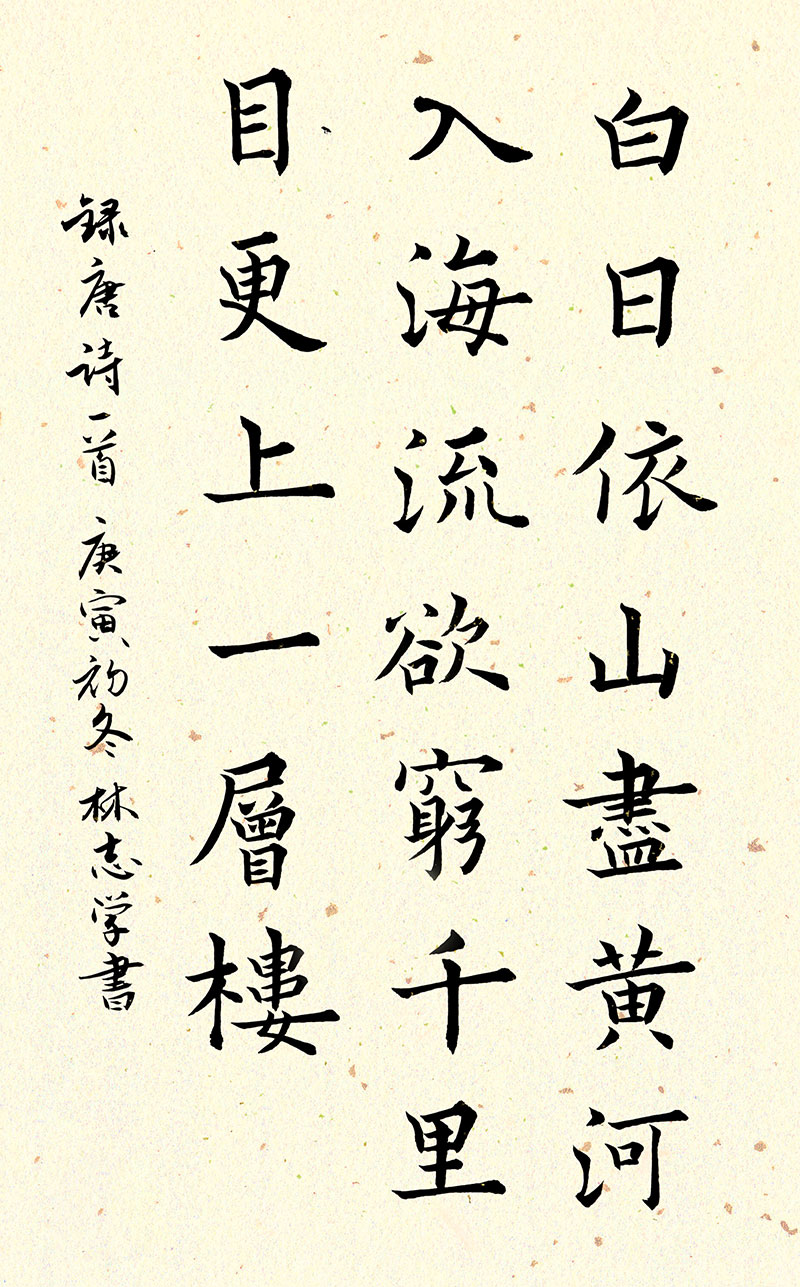 白日依山盡黄河
入海流欲窮千里
目更上一層樓
録唐诗一首 庚寅初冬 林志学書